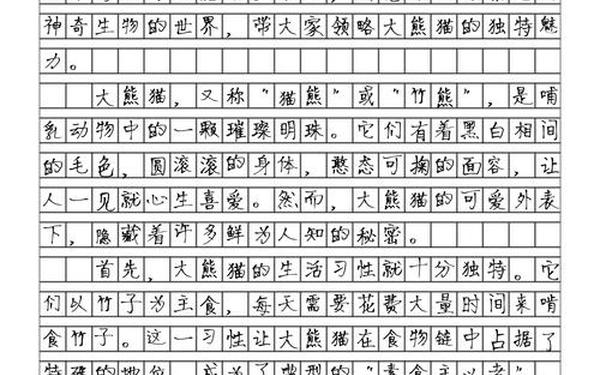 神奇生物的世界，带大家领略大熊猫的独特魅
力。
大熊猫，又称“猫熊”或“竹熊”，是哺
乳动物中的一颗璀璨明珠。它们有着黑白相间
的毛色，圆滚滚的身体，憨态可掬的面容，让
人一见就心生喜爱。然而，大熊猫的可爱外表
下，隐藏着许多鲜为人知的秘密。
首先，大熊猫的生活习性就十分独特。它
们以竹子为主食，每天需要花费大量时间来啃
食竹子。这一习性让大熊猫在食物链中占据了
特殊的地位，成为了典型的“素食主义者”